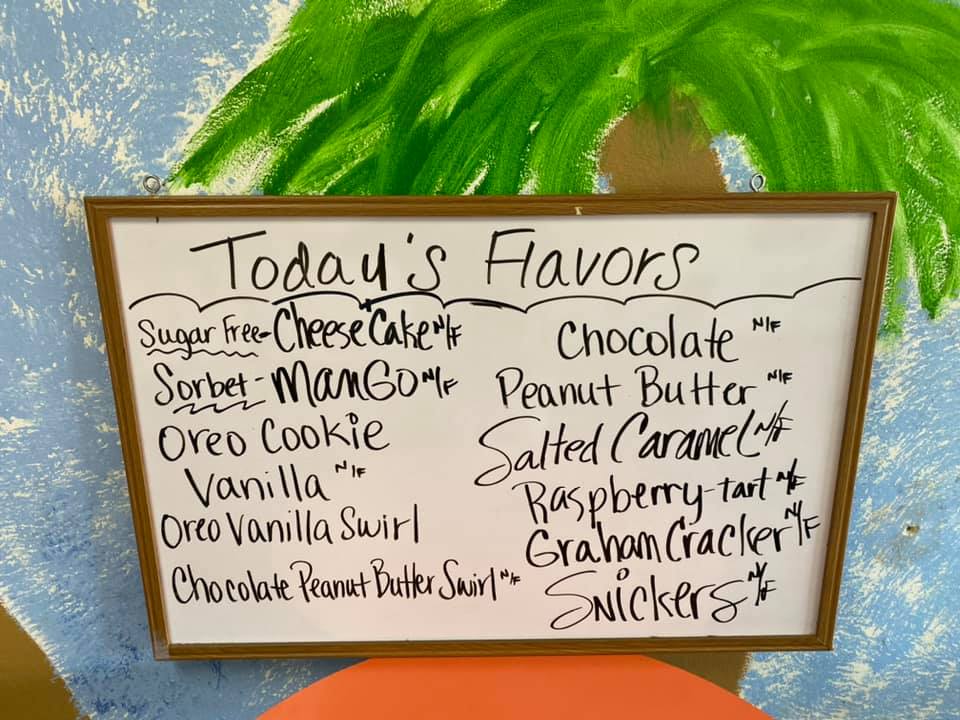 Today's Flavors
Sugar Free-CheeseCake N/F
Sorbet-MANGO N/F
Oreo Cookie
Vanilla N/F
Oreo Vanilla Swirl
Chocolate Peanut Butter Swirl N/F
Chocolate N/F
Peanut Butter N/F
Salted Caramel N/F
Raspberry-tart N/F
Graham Cracker N/F
Snickers N/F